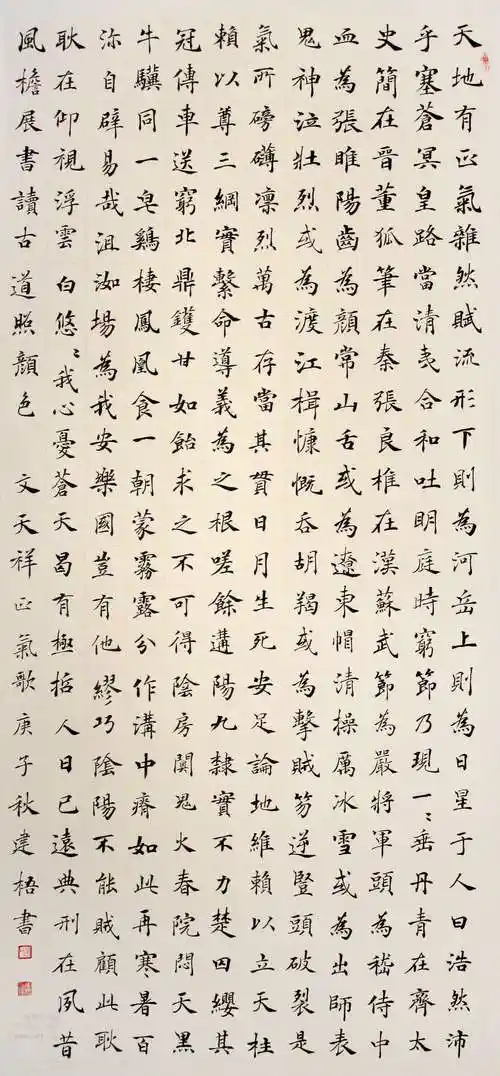 天地有正氣雜然賦流形下則為河岳上則為日星于人曰浩然沛
乎塞蒼冥皇路當清夷合和吐明庭時窮節乃現一〻垂丹青在齊太
史簡在晉董狐筆在秦張良椎在漢蘇武節為嚴將軍頭為嵇侍中
血為張睢陽齒為顏常山舌或為遼東帽清操厲冰雪或為出師表
鬼神泣壯烈或為渡江楫慷慨吞胡羯或為擊賊笏逆豎頭破裂是
氣所磅礴凛烈萬古存當其貫日月生死安足論地維賴以立天柱
賴以尊三綱實繫命導義為之根嗟餘遘陽九隸實不力楚囚纓其
冠傳車送窮北鼎鑊甘如飴求之不可得陰房闃鬼火春院悶天黑
牛驥同一皂鷄棲鳳凰食一朝蒙霧露分作溝中瘠如此再寒暑百
沴自辟易哉沮洳場為我安樂國豈有他繆巧陰陽不能賊顧此耿
耿在仰視浮雲白悠〻我心憂蒼天曷有極哲人日已遠典刑在夙昔
風檐展書讀古道照顏色 文天祥正氣歌庚子秋建梧書